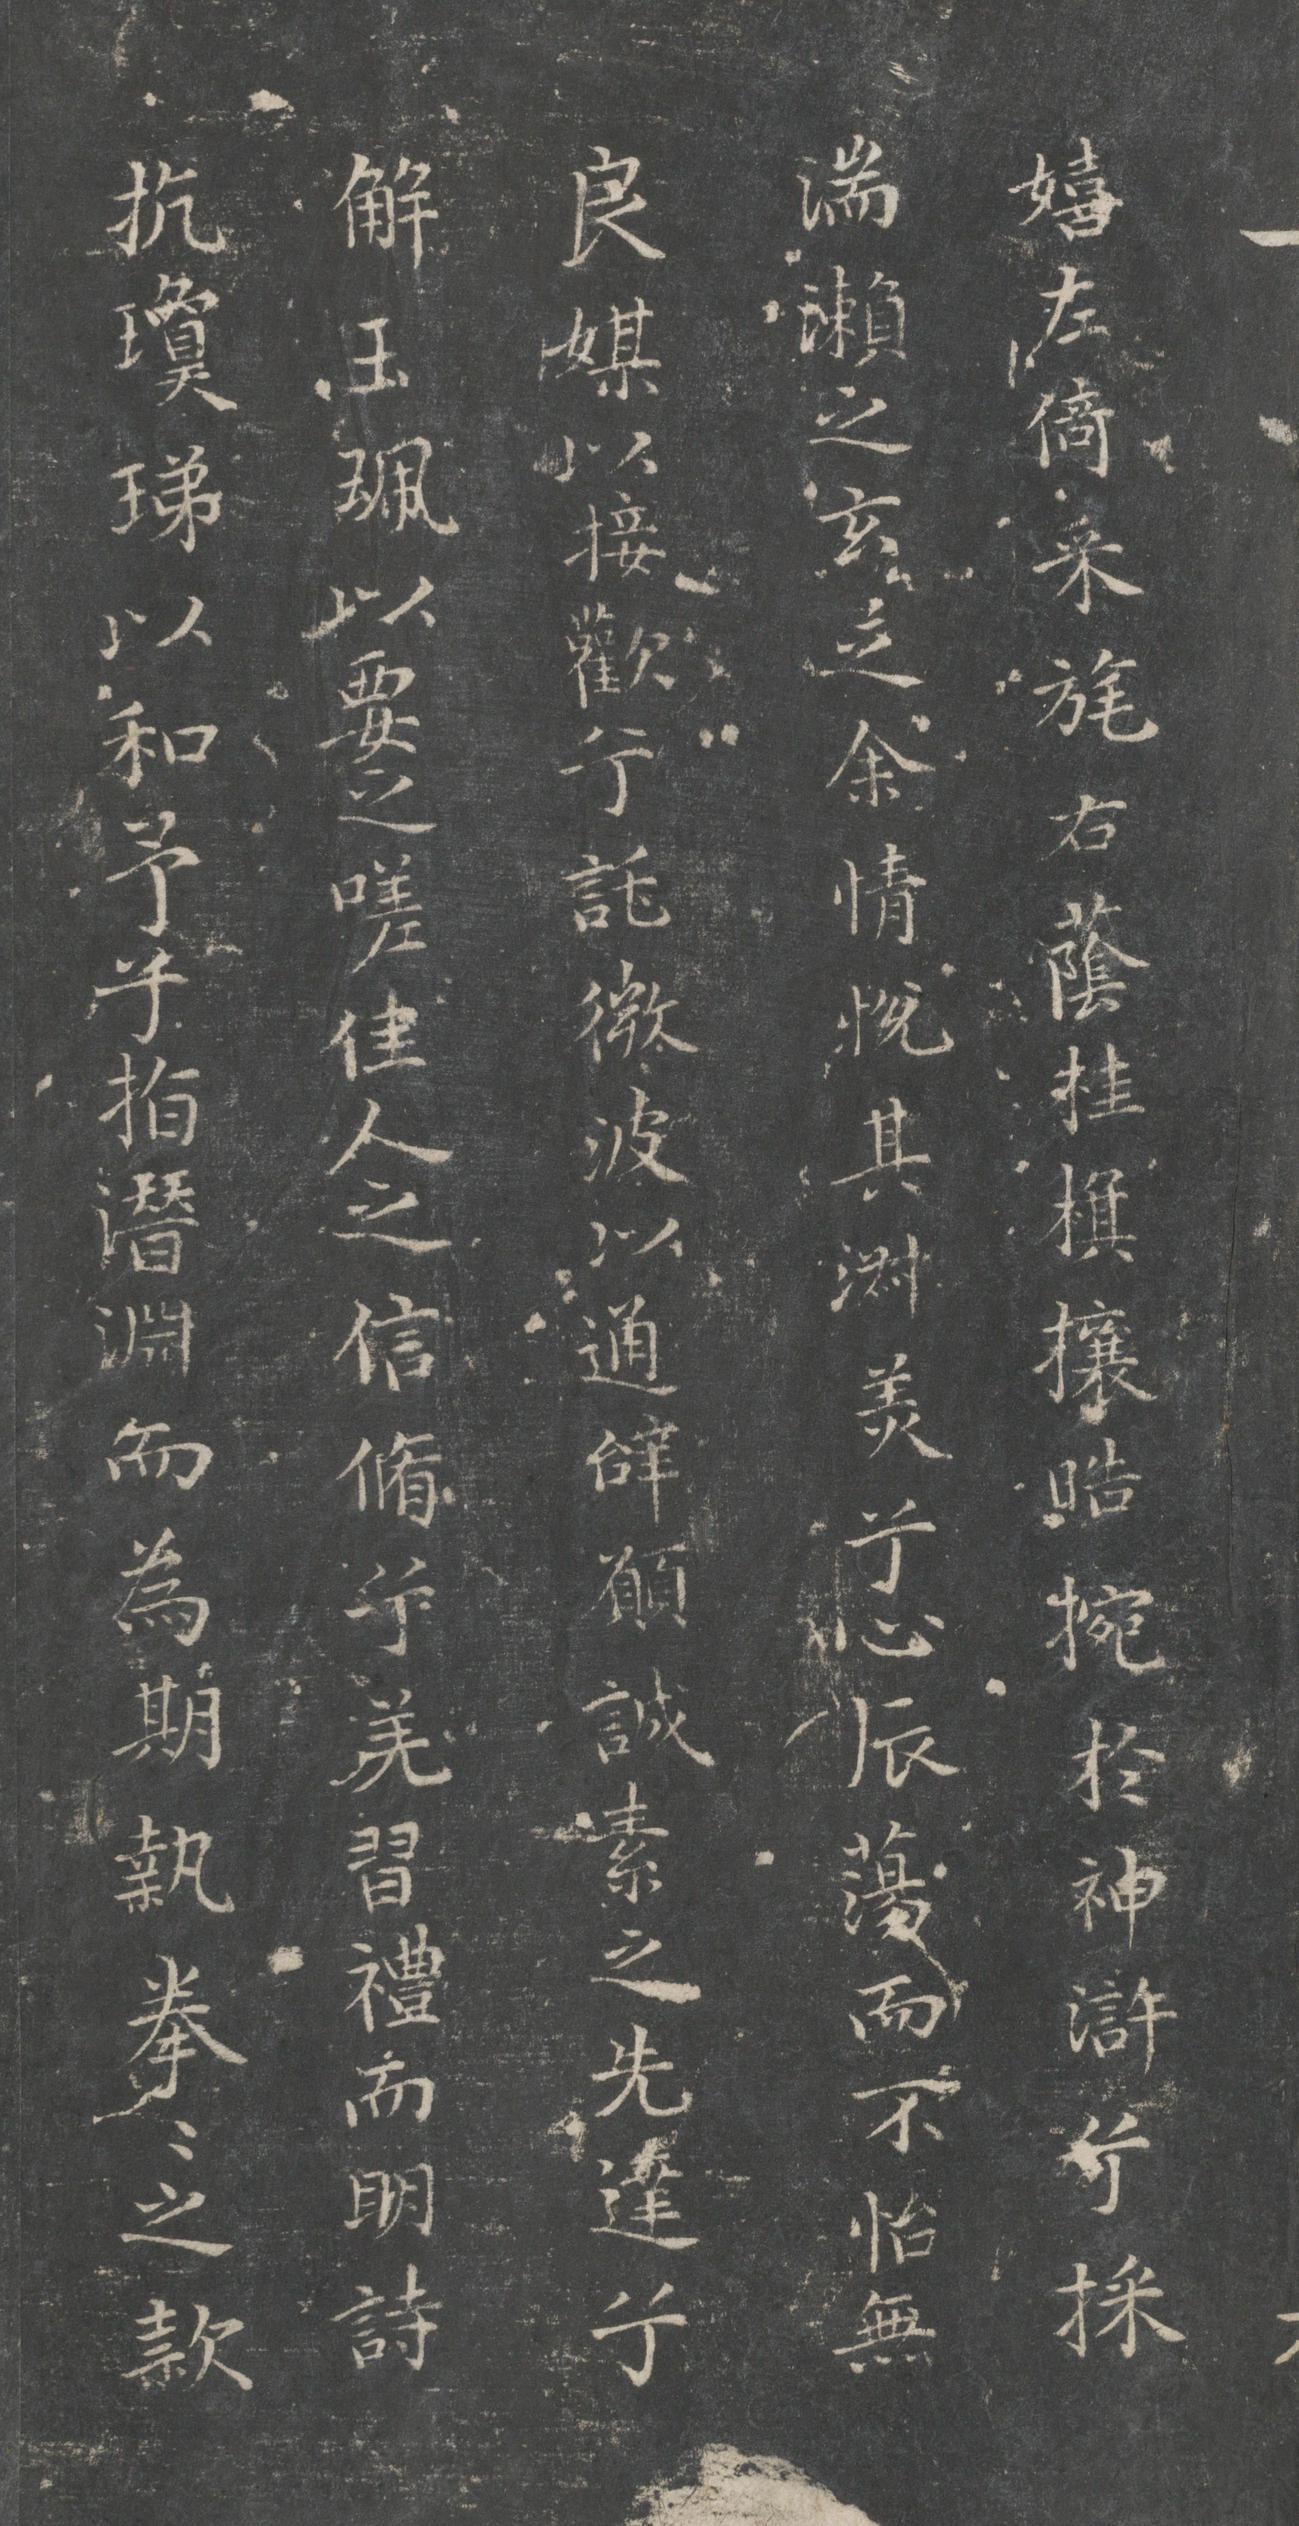 嬉左倚采旄右蔭桂旗攘皓捥於神滸兮採
湍瀨之玄芝余情悅其淑美兮心振蕩而不怡無
良媒以接歡兮託微波以通辭願誠素之先達兮
解玉珮以要之嗟佳人之信脩兮羌習禮而明詩
抗瓊珶以和予兮指潛淵而為期執拳〻之款